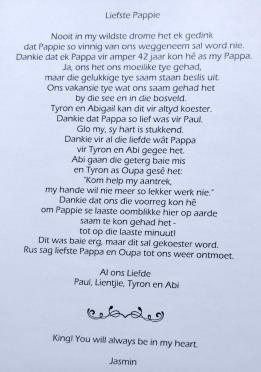 Liefste Pappie
Nooit in my wildste drome het ek gedink
dat Pappie so vinnig van ons weggeneem sal word nie.
Dankie dat ek Pappa vir amper 42 jaar kon hê as my Pappa.
Ja, ons het ons moeilike tye gehad,
maar die gelukkige tye saam staan beslis uit.
Ons vakansie tye wat ons saam gehad het
by die see en in die bosveld.
Tyron en Abigail kan dit vir altyd koester.
Dankie dat Pappa so lief was vir Paul.
Glo my, sy hart is stukkend.
Dankie vir al die liefde wât Pappa
vir Tyron en Abi gegee het.
Abi gaan die geterg baie mis
en Tyron as Oupa gesê het:
"Kom help my aantrek,
my hande wil nie meer so lekker werk nie."
Dankie dat ons die voorreg kon hê
om Pappie se laaste oomblikke hier op aarde
saam te kon gehad het -
tot op die laaste minuut!
Dit was baie erg, maar dit sal gekoester word.
Rus sag liefste Pappa en Oupa tot ons weer ontmoet.
Al ons Liefde
Paul, Lientjie, Tyron en Abi
King! You will always be in my heart.
Jasmin